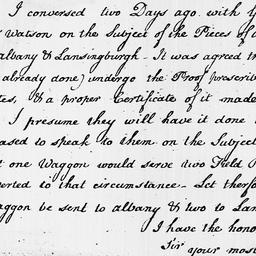 I conversed two Days ago with
Watson on the Subject of the Pieces of
Albany & Lansingburgh - It was agreed th
already done) undergo the Proof prescrib
tes, & a proper Certificate of it made
I presume they will have it done
ased to speak to them on the Subject
t one Waggon would serve two Field
erted to that circumstance - Let therfo
aggon be sent to albany & two to Lan
I have the hono
Sir your most